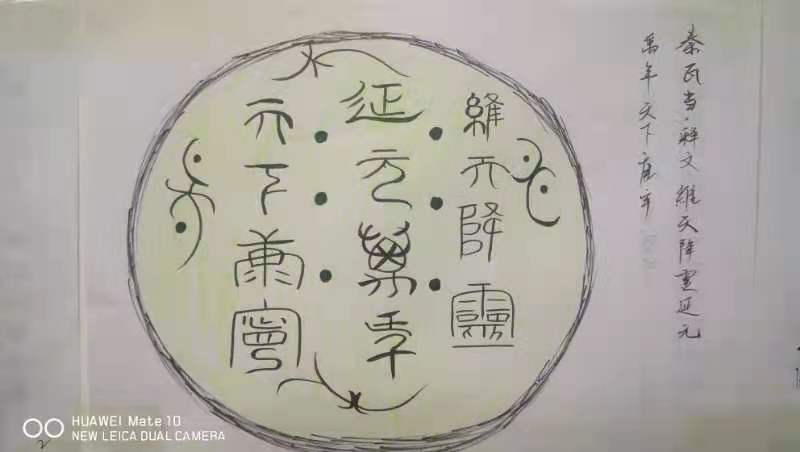 秦瓦当·释文維天降靈延元
萬年天下康宁
維天降靈
延元萬年
天下康寧
HUAWEI Mate 10
NEW LEICA DUAL CAMERA
2